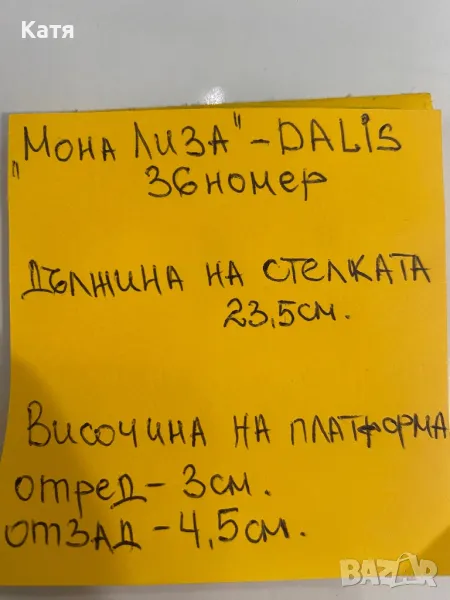 Катя
"Мона Лиза" - DALIS
36 номер
Дължина на стелката
23,5см.
Височина на платформа
отпред - 3см.
отзад - 4,5см.
BAZAR